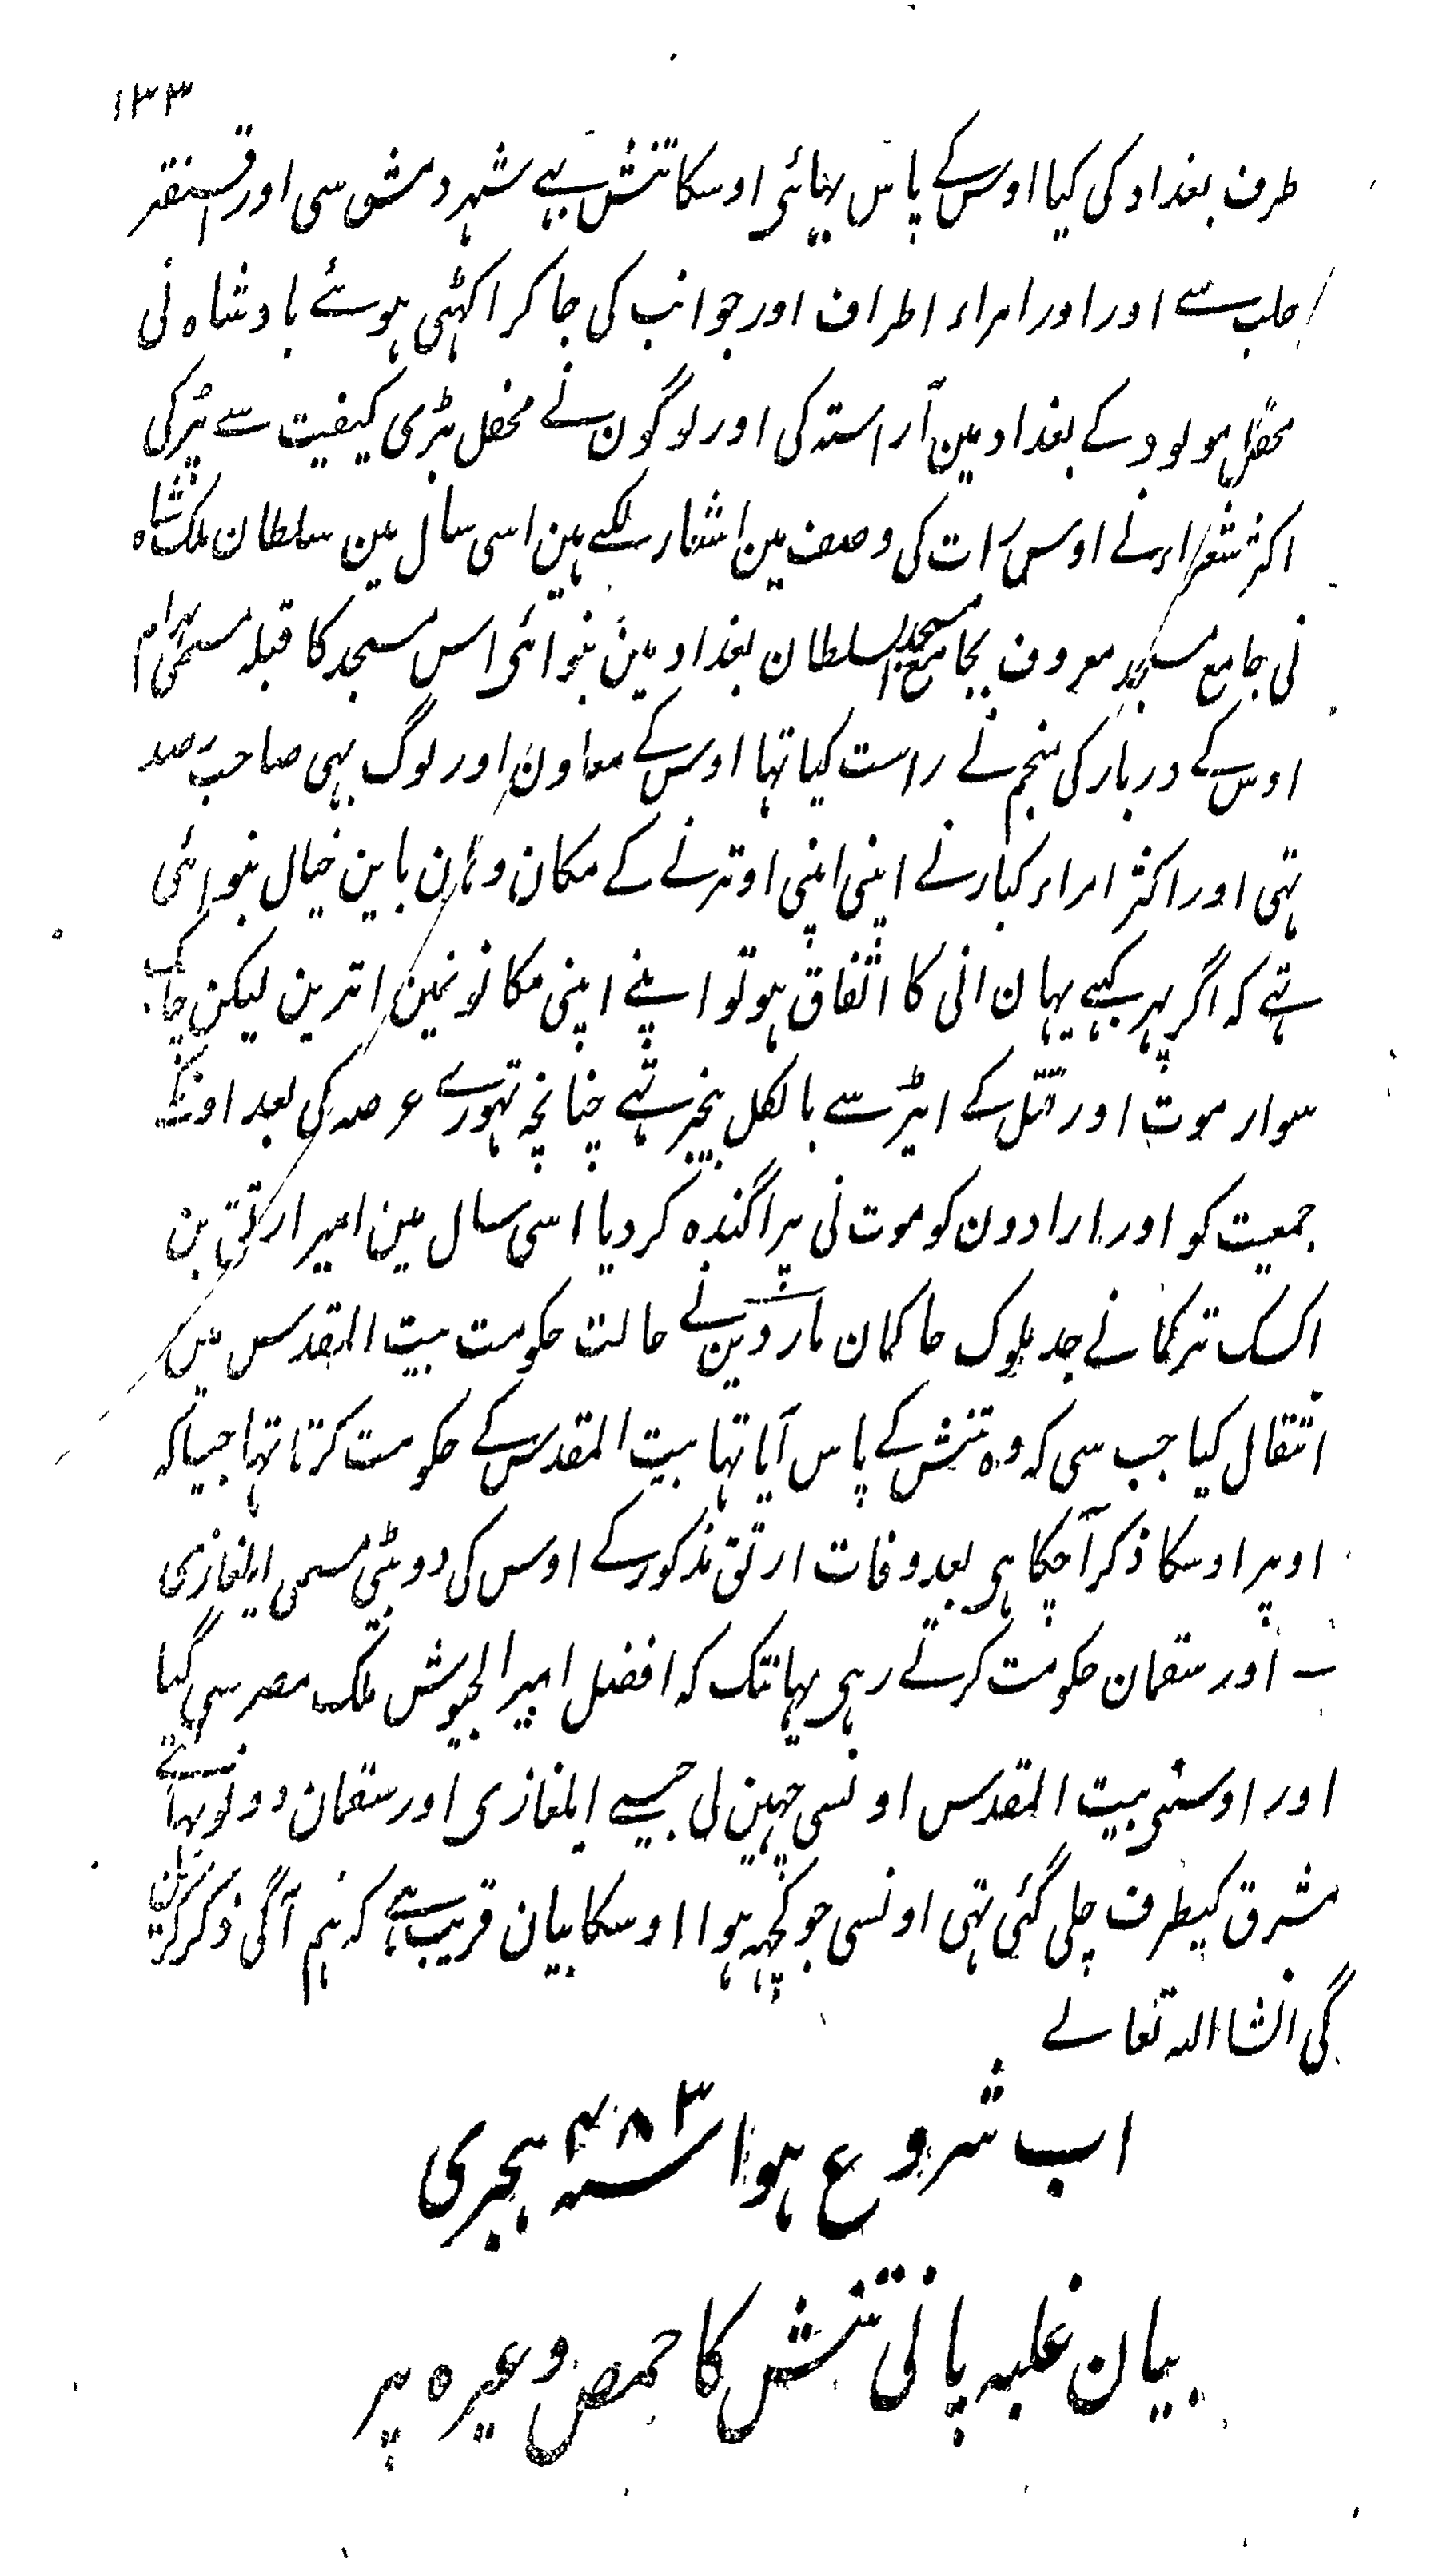 ١٣٣
طرف بغداد کی کیا اوس کے پاس بہائی اوسکا تتش بہے شہر دمشق سی اور اقسنقر
حلب سے اور اور امراء اطراف اور جوانب کی جا کر اکہٹی ہوئے بادشاہ نی
محفل مولود کے بغداد مین آراستہ کی اور لوگون نے محفل بڑی کیفیت سے پڑکی
اکثر شعراء نے اوس رات کی وصف مین اشعار لکہے ہین اسی سال مین سلطان ملک شاہ
نی جامع مسجد معروف بجامع مسجد السلطان بغداد مین بنوائی اس مسجد کا قبلہ مسمی بہرام
اوس کے دربار کی منجم نے راست کیا تہا اوس کے معاون اور لوگ بہی صاحب رصد
تہی اور اکثر امراء کبار نے اپنی اپنی اوترنے کے مکان وہان باین خیال بنوائی
تہے کہ اگر پہر کبہے یہان انی کا اتفاق ہو تو اپنے اپنی مکانو نمین اترین لیکن چابک
سوار موت اور قتل کے ایڑ سے بالکل بیخبر تہے چنانچہ تہورے عرصہ کی بعد اونکے
جمعیت کو اور ارادون کو موت نی پراگندہ کر دیا اسی سال مین امیر ارتق بن
اکسک ترکمانے جد ملوک حاکمان ماردین نے حالت حکومت بیت المقدس مین
انتقال کیا جب سی کہ وہ تتش کے پاس آیا تہا بیت المقدس کے حکومت کرتا تہا جیسا کہ
اوپر اوسکا ذکر آچکا ہی بعد وفات ارتق مذکور کے اوس کی دو بیٹی مسمی ایلغازی
اور سقمان حکومت کرتے رہی یہانتک کہ افضل امیر الجیوش ملک مصر سی گیا
اور اوسنی بیت المقدس اونسی چہین لی جیسے ایلغازی اور سقمان دونو بہائے
مشرق کیطرف چلی گئی تہی اونسی جو کچہہ ہوا اوسکا بیان قریب ہے کہ ہم آگی ذکر کرین
گی انشا اللہ تعالے
اب شروع ہوا سنہ ۴۸۳ ہجری
بیان غلبہ پانی تتش کا حمص وغیرہ پر